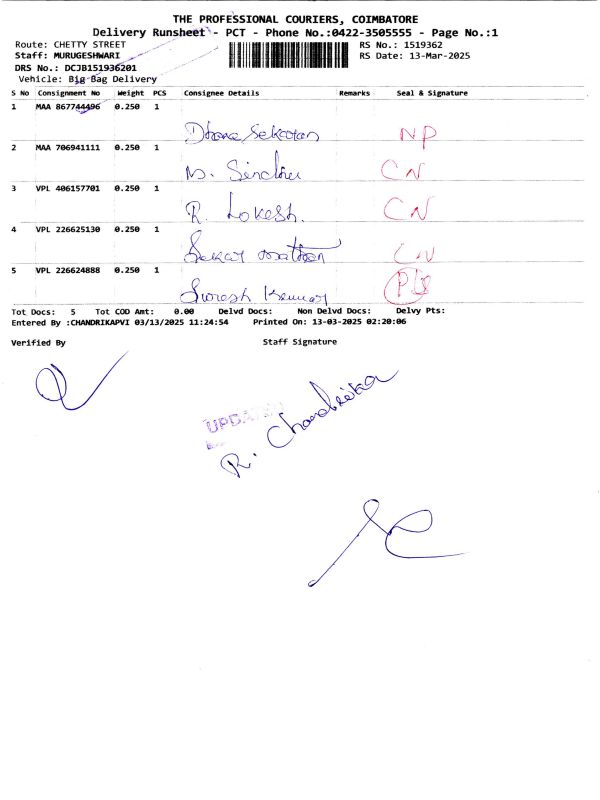 THE PROFESSIONAL COURIERS, COIMBATORE
Delivery Runsheet - PCT - Phone No.:0422-3505555 - Page No.:1
Route: CHETTY STREET RS No.: 1519362
Staff: MURUGESHWARI RS Date: 13-Mar-2025
DRS No.: DCJB151936201
Vehicle: Big Bag Delivery
S No Consignment No Weight PCS Consignee Details Remarks Seal & Signature
1 MAA 867744496 0.250 1
Dhana Sekaran NP
2 MAA 706941111 0.250 1
N. Sindhu CN
3 VPL 406157701 0.250 1
R. Lokesh. CN
4 VPL 226625130 0.250 1
Sekar CN
5 VPL 226624888 0.250 1
Suresh Kumar
Tot Docs: 5 Tot COD Amt: 0.00 Delvd Docs: Non Delvd Docs: Delvy Pts:
Entered By :CHANDRIKAPVI 03/13/2025 11:24:54 Printed On: 13-03-2025 02:20:06
Verified By Staff Signature
UPDATED
R. Chandrika